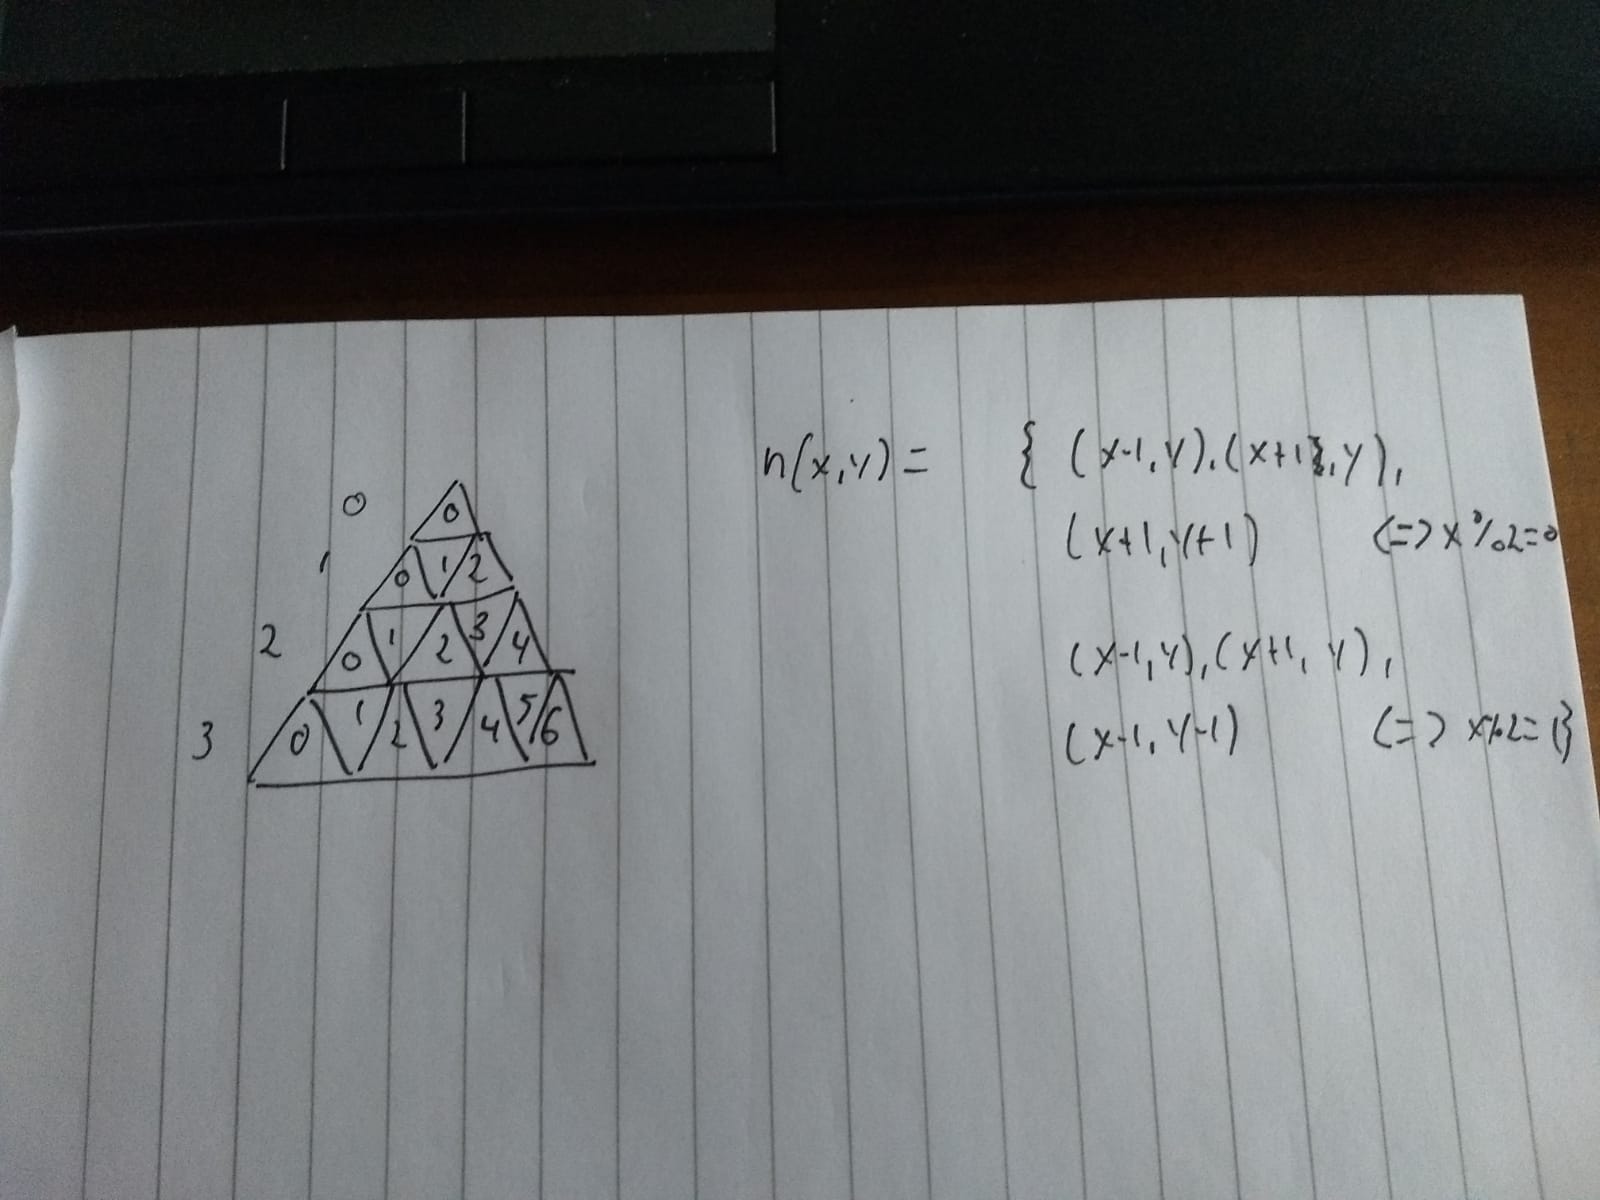 0
0
1
0 1 2
2
0 1 2 3 4
3
0 1 2 3 4 5 6
n(x,y) = { (x-1,y), (x+1,y),
(x+1,y+1) <=> x%2=0
(x-1,y), (x+1,y),
(x-1,y-1) <=> x%2=1}